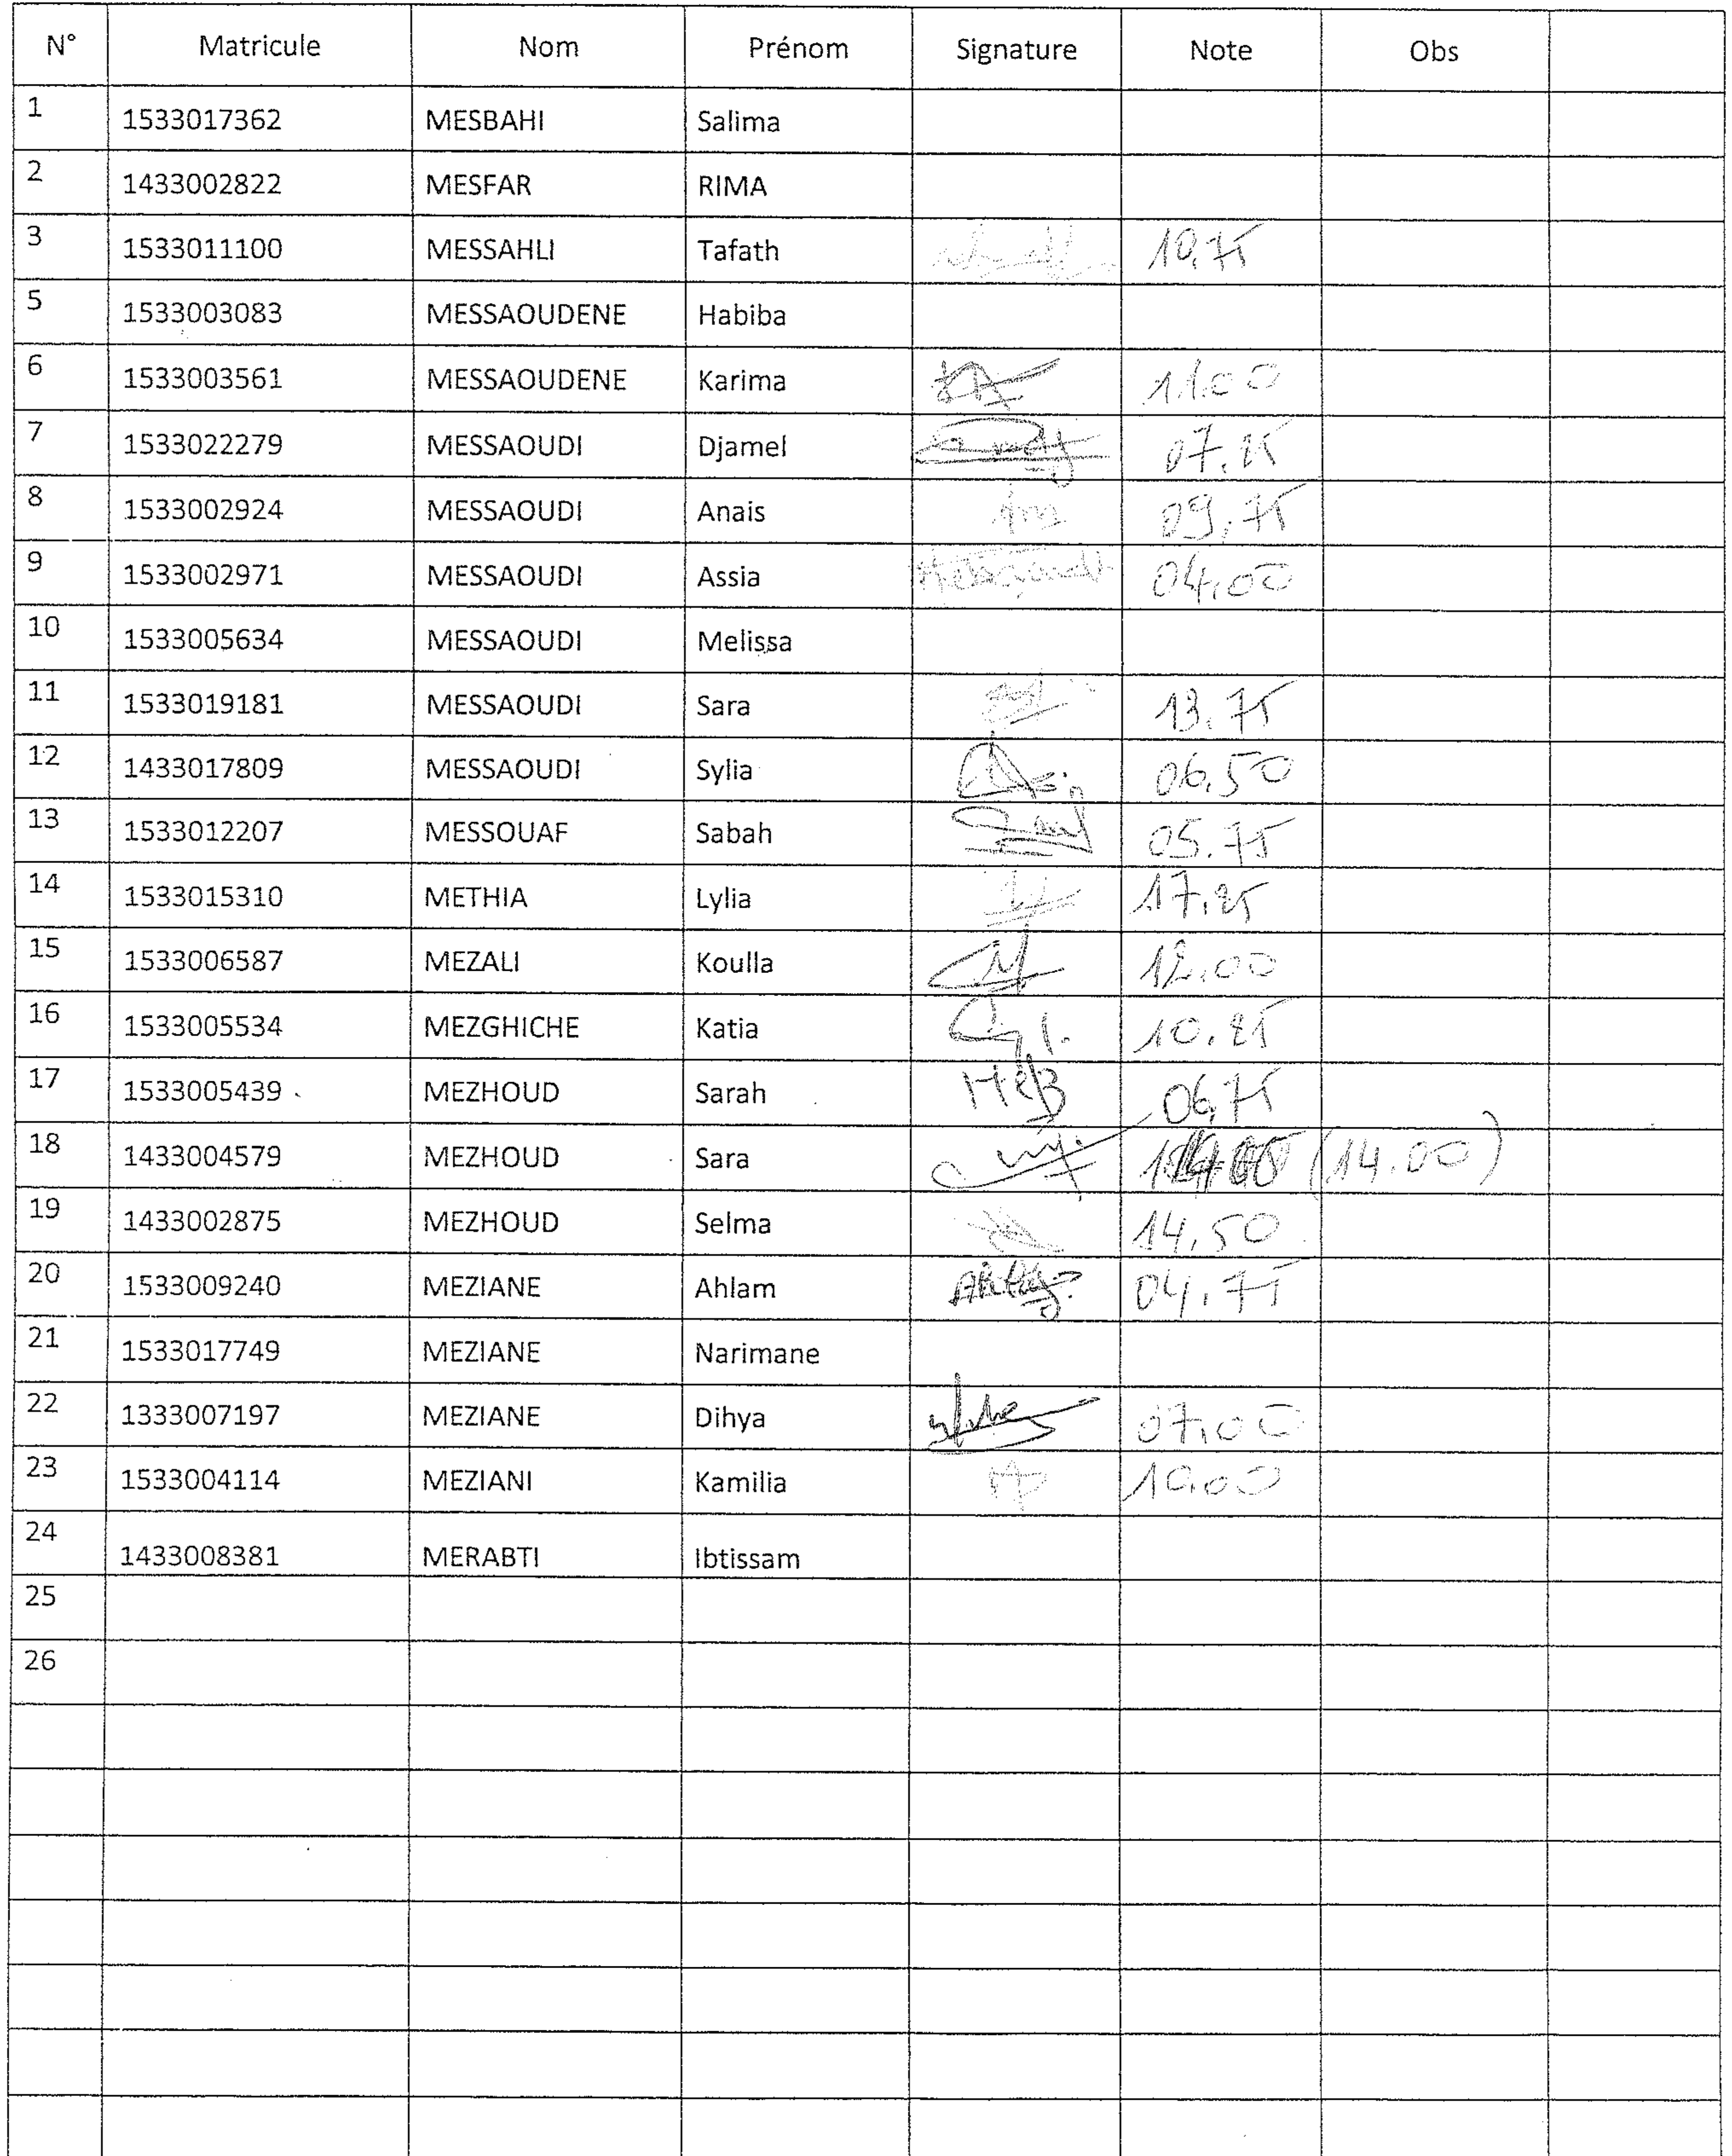 N° Matricule Nom Prénom Signature Note Obs
1 1533017362 MESBAHI Salima
2 1433002822 MESFAR RIMA
3 1533011100 MESSAHLI Tafath 10,75
5 1533003083 MESSAOUDENE Habiba
6 1533003561 MESSAOUDENE Karima 11.00
7 1533022279 MESSAOUDI Djamel 07.25
8 1533002924 MESSAOUDI Anais 09,75
9 1533002971 MESSAOUDI Assia 04,00
10 1533005634 MESSAOUDI Melissa
11 1533019181 MESSAOUDI Sara 13.75
12 1433017809 MESSAOUDI Sylia 06,50
13 1533012207 MESSOUAF Sabah 05.75
14 1533015310 METHIA Lylia 17,25
15 1533006587 MEZALI Koulla 12.00
16 1533005534 MEZGHICHE Katia 10.25
17 1533005439 MEZHOUD Sarah 06,75
18 1433004579 MEZHOUD Sara (14.00)
19 1433002875 MEZHOUD Selma 14,50
20 1533009240 MEZIANE Ahlam 04.75
21 1533017749 MEZIANE Narimane
22 1333007197 MEZIANE Dihya 07,00
23 1533004114 MEZIANI Kamilia 10,00
24 1433008381 MERABTI Ibtissam
25
26